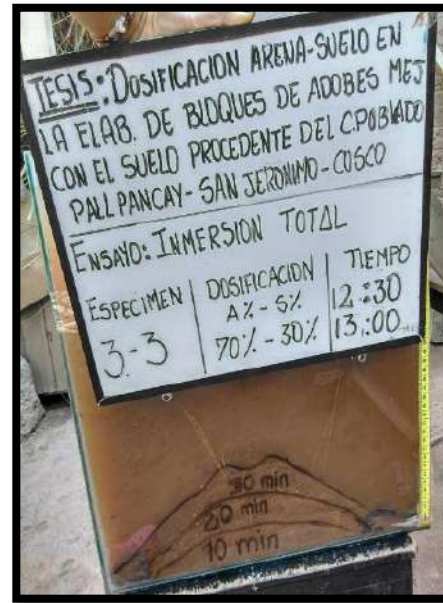 TESIS: DOSIFICACION ARENA-SUELO EN
LA ELAB. DE BLOQUES DE ADOBES MEJ
CON EL SUELO PROCEDENTE DEL C.POBLADO
PALLPANCAY - SAN JERONIMO - CUSCO
ENSAYO: INMERSION TOTAL
ESPECIMEN DOSIFICACION TIEMPO
A% - S% 12:30
3-3 70% - 30% 13:00
30 min
20 min
10 min